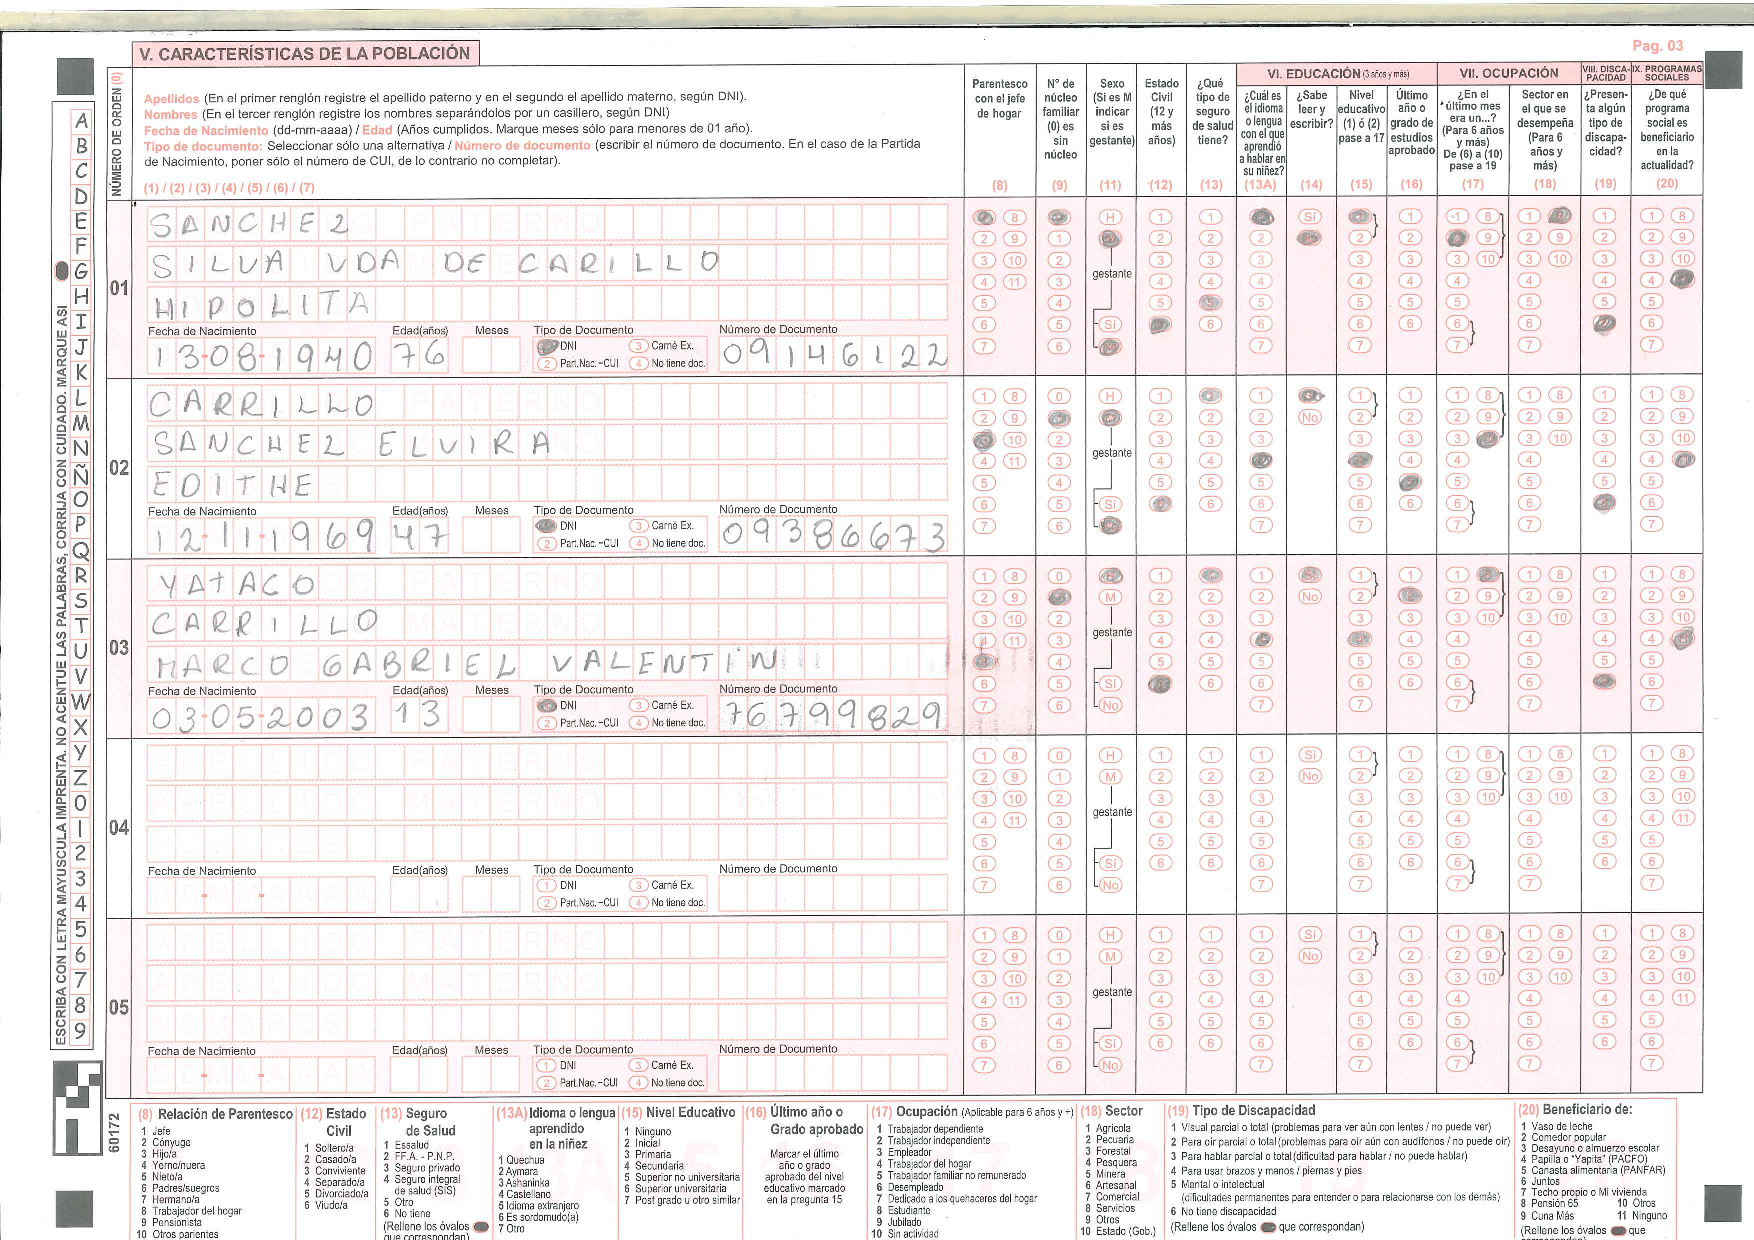 V. CARACTERÍSTICAS DE LA POBLACIÓN
Pag. 03
NÚMERO DE ORDEN (0)
Apellidos (En el primer renglón registre el apellido paterno y en el segundo el apellido materno, según DNI).
Nombres (En el tercer renglón registre los nombres separándolos por un casillero, según DNI)
Fecha de Nacimiento (dd-mm-aaaa) / Edad (Años cumplidos. Marque meses sólo para menores de 01 año).
Tipo de documento: Seleccionar sólo una alternativa / Número de documento (escribir el número de documento. En el caso de la Partida
de Nacimiento, poner sólo el número de CUI, de lo contrario no completar).
(1) / (2) / (3) / (4) / (5) / (6) / (7)
Parentesco con el jefe de hogar (8)
N° de núcleo familiar (0) es sin núcleo (9)
Sexo (Si es M indicar si es gestante) (11)
Estado Civil (12 y más años) (12)
¿Qué tipo de seguro de salud tiene? (13)
VI. EDUCACIÓN (3 años y más)
¿Cuál es el idioma o lengua con el que aprendió a hablar en su niñez? (13A)
¿Sabe leer y escribir? (14)
Nivel educativo (1) ó (2) pase a 17 (15)
Último año o grado de estudios aprobado (16)
VII. OCUPACIÓN
¿En el último mes era un...? (Para 6 años y más) De (6) a (10) pase a 19 (17)
Sector en el que se desempeña (Para 6 años y más) (18)
VIII. DISCAPACIDAD
¿Presenta algún tipo de discapacidad? (19)
IX. PROGRAMAS SOCIALES
¿De qué programa social es beneficiario en la actualidad? (20)
ESCRIBA CON LETRA MAYUSCULA IMPRENTA. NO ACENTUE LAS PALABRAS, CORRIJA CON CUIDADO. MARQUE ASI
A B C D E F G H I J K L M N Ñ O P Q R S T U V W X Y Z 0 1 2 3 4 5 6 7 8 9
01
SANCHEZ
SILVA VDA DE CARILLO
HIPOLITA
Fecha de Nacimiento Edad(años) Meses Tipo de Documento Número de Documento
13-08-1940 76 DNI 3 Carné Ex. 2 Part.Nac.-CUI 4 No tiene doc. 09146122
gestante
02
CARRILLO
SANCHEZ ELVIRA
EDITHE
Fecha de Nacimiento Edad(años) Meses Tipo de Documento Número de Documento
12-11-1969 47 DNI 3 Carné Ex. 2 Part.Nac.-CUI 4 No tiene doc. 09386673
gestante
03
YATACO
CARRILLO
MARCO GABRIEL VALENTIN
Fecha de Nacimiento Edad(años) Meses Tipo de Documento Número de Documento
03-05-2003 13 DNI 3 Carné Ex. 2 Part.Nac.-CUI 4 No tiene doc. 76799829
gestante
04
Fecha de Nacimiento Edad(años) Meses Tipo de Documento Número de Documento
1 DNI 3 Carné Ex. 2 Part.Nac.-CUI 4 No tiene doc.
gestante
05
Fecha de Nacimiento Edad(años) Meses Tipo de Documento Número de Documento
1 DNI 3 Carné Ex. 2 Part.Nac.-CUI 4 No tiene doc.
gestante
60172
(8) Relación de Parentesco
1 Jefe
2 Cónyuge
3 Hijo/a
4 Yerno/nuera
5 Nieto/a
6 Padres/suegros
7 Hermano/a
8 Trabajador del hogar
9 Pensionista
10 Otros parientes
(12) Estado Civil
1 Soltero/a
2 Casado/a
3 Conviviente
4 Separado/a
5 Divorciado/a
6 Viudo/a
(13) Seguro de Salud
1 Essalud
2 FF.A. - P.N.P.
3 Seguro privado
4 Seguro integral de salud (SIS)
5 Otro
6 No tiene
(Rellene los óvalos que correspondan)
(13A) Idioma o lengua aprendido en la niñez
1 Quechua
2 Aymara
3 Ashaninka
4 Castellano
5 Idioma extranjero
6 Es sordomudo(a)
7 Otro
(15) Nivel Educativo
1 Ninguno
2 Inicial
3 Primaria
4 Secundaria
5 Superior no universitaria
6 Superior universitaria
7 Post grado u otro similar
(16) Último año o Grado aprobado
Marcar el último
año o grado
aprobado del nivel
educativo marcado
en la pregunta 15
(17) Ocupación (Aplicable para 6 años y +)
1 Trabajador dependiente
2 Trabajador independiente
3 Empleador
4 Trabajador del hogar
5 Trabajador familiar no remunerado
6 Desempleado
7 Dedicado a los quehaceres del hogar
8 Estudiante
9 Jubilado
10 Sin actividad
(18) Sector
1 Agricola
2 Pecuaria
3 Forestal
4 Pesquera
5 Minera
6 Artesanal
7 Comercial
8 Servicios
9 Otros
10 Estado (Gob.)
(19) Tipo de Discapacidad
1 Visual parcial o total (problemas para ver aún con lentes / no puede ver)
2 Para oir parcial o total (problemas para oír aún con audífonos / no puede oir)
3 Para hablar parcial o total (dificultad para hablar / no puede hablar)
4 Para usar brazos y manos / piernas y pies
5 Mental o intelectual
(dificultades permanentes para entender o para relacionarse con los demás)
6 No tiene discapacidad
(Rellene los óvalos que correspondan)
(20) Beneficiario de:
1 Vaso de leche
2 Comedor popular
3 Desayuno o almuerzo escolar
4 Papilla o "Yapita" (PACFO)
5 Canasta alimentaria (PANFAR)
6 Juntos
7 Techo propio o Mi vivienda
8 Pensión 65 10 Otros
9 Cuna Más 11 Ninguno
(Rellene los óvalos que